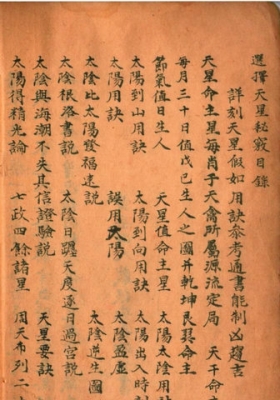 選擇天星秘竅目錄
詳刻天星假如用訣參考通書能制凶趨吉
天星命主星每肖于天禽所屬源流定局 天干命
每月三十日值戊己生人之圖并乾坤艮巽命主
節氣值日生人 天星值命主星 太陽太陰用
太陽到山用訣 太陽到向用訣 太陽出入時刻
太陽用訣 誤用太陽 太陰盈虛
太陰比太陽發福速說 太陰逆生圖
太陰根洛書說 太陰日躔天度逐日過宮說
太陰與海潮不失其信證驗說 天星要訣
太陽得精光論 七政四餘諸星 周天布列二